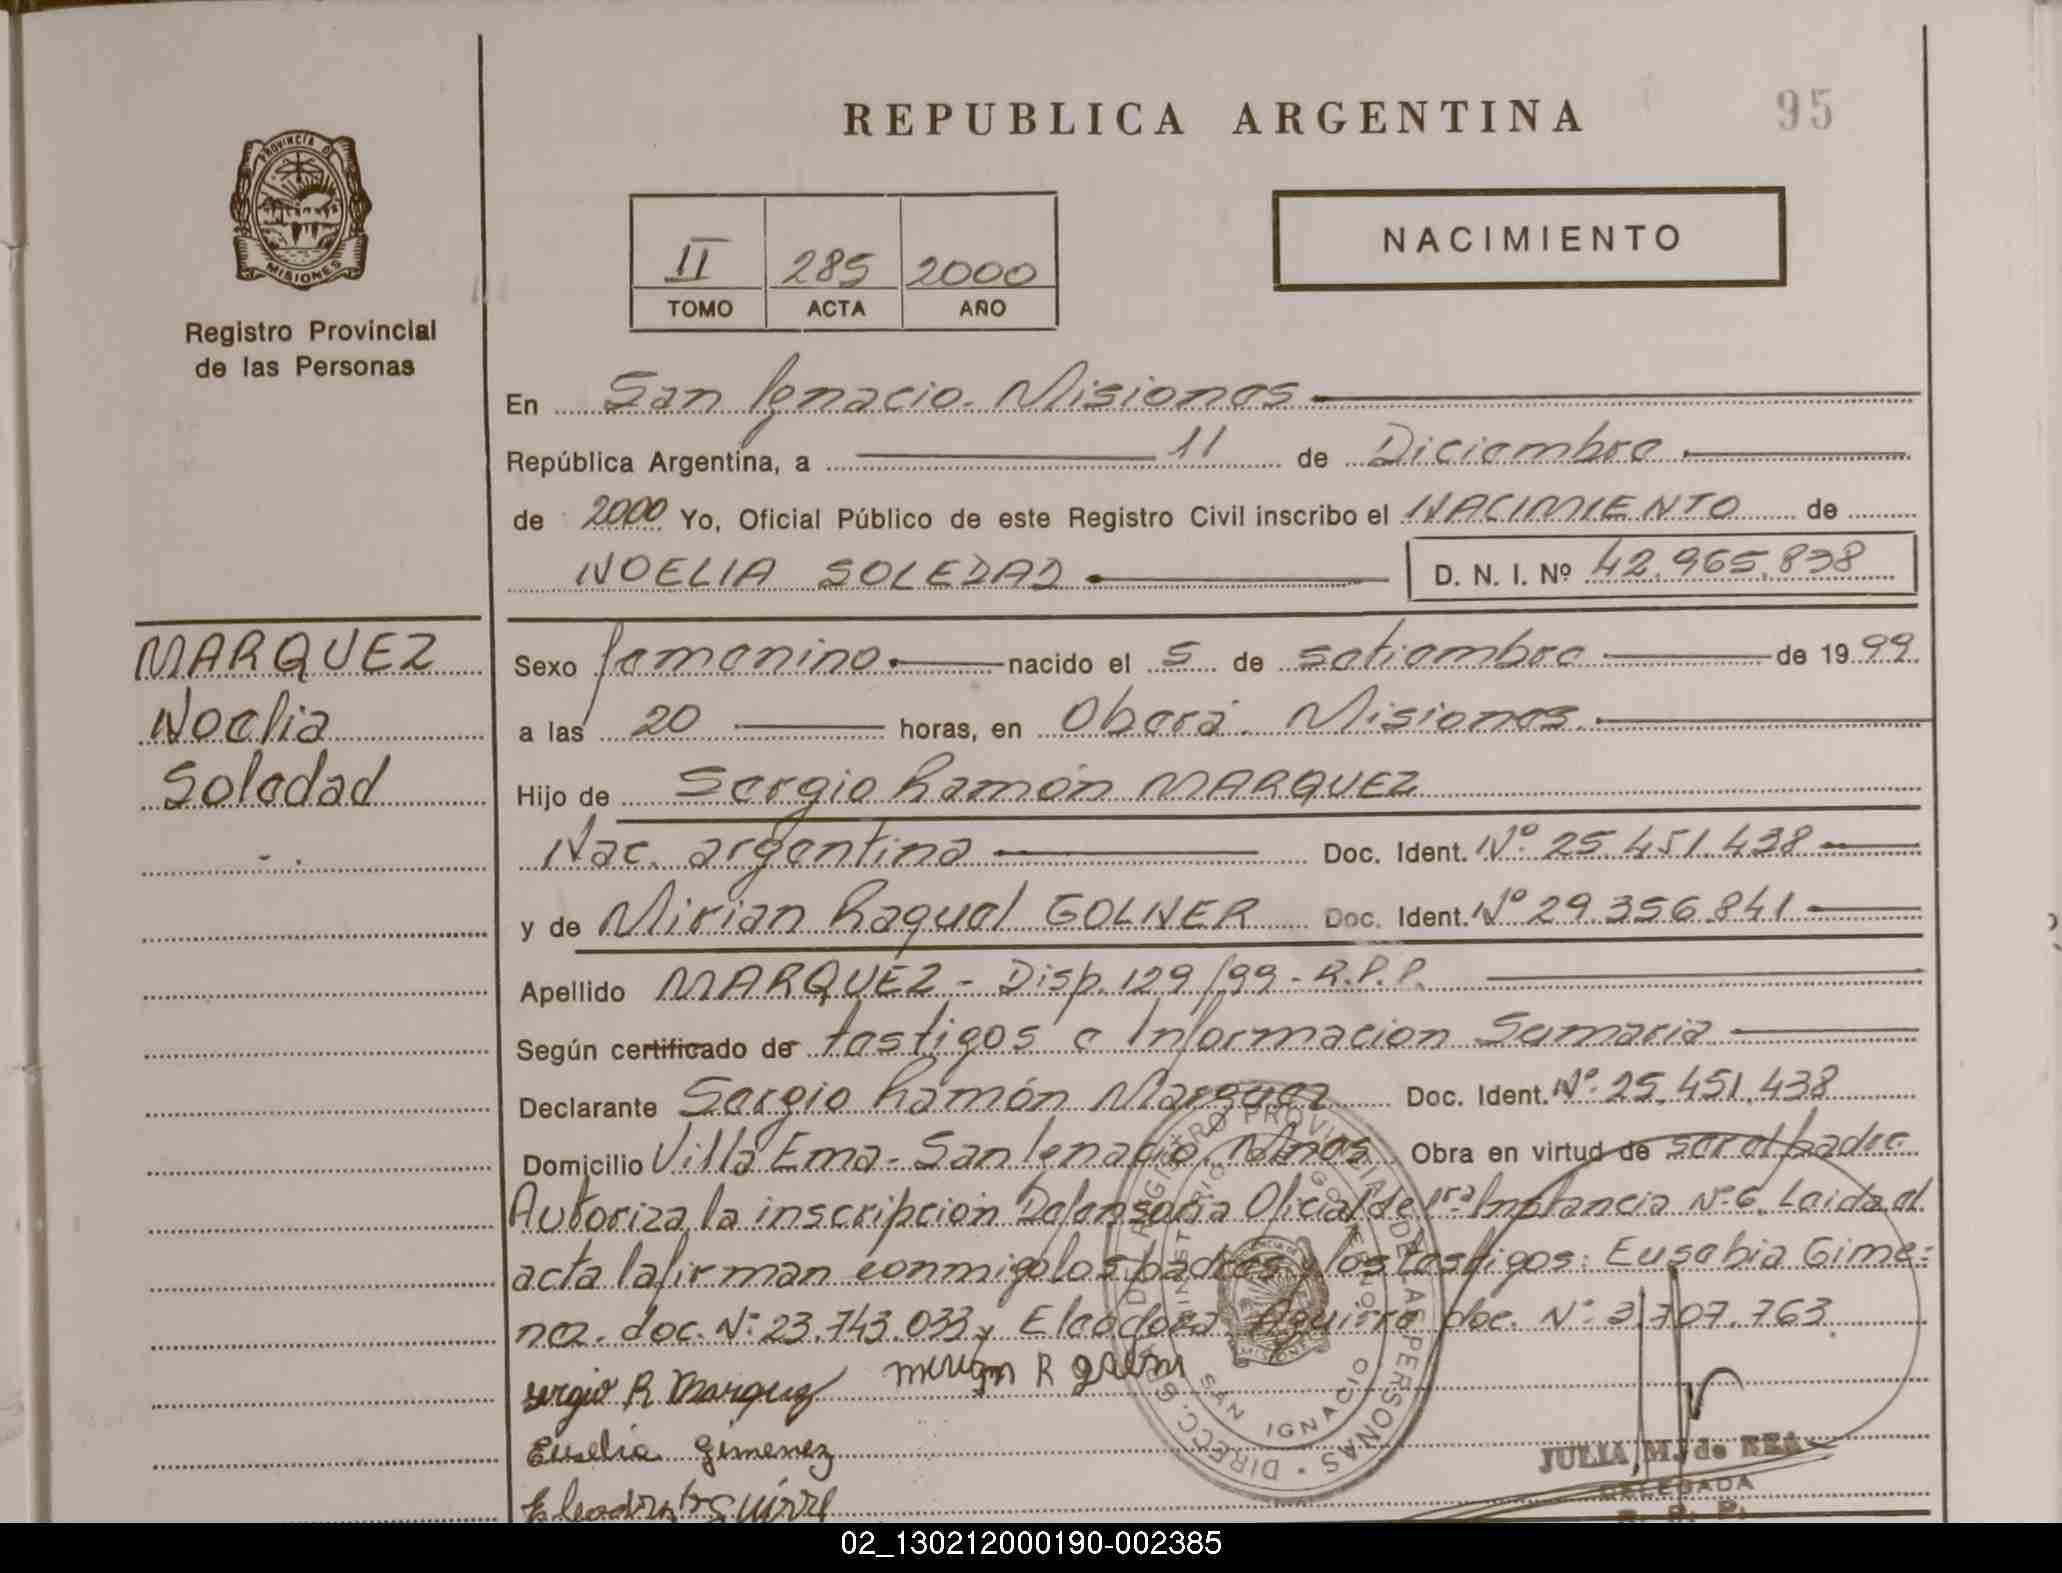 REPUBLICA ARGENTINA
95
PROVINCIA DE
MISIONES
Registro Provincial
de las Personas
II 285 2000
TOMO ACTA AÑO
NACIMIENTO
En San Ignacio. Misiones
República Argentina, a 11 de Diciembre
de 2000 Yo, Oficial Público de este Registro Civil inscribo el NACIMIENTO de
NOELIA SOLEDAD D. N. I. Nº 42.965.838
MARQUEZ
Noelia
Soledad
Sexo femenino nacido el 5 de setiembre de 1999
a las 20 horas, en Oberá. Misiones.
Hijo de Sergio Ramón MARQUEZ
Nac. argentina Doc. Ident. Nº 25.451.438
y de Mirian Raquel GOLNER Doc. Ident. Nº 29.356.841
Apellido MARQUEZ - Disp. 129/99 - R.P.P.
Según certificado de testigos e Informacion Sumaria
Declarante Sergio Ramón Marquez Doc. Ident. Nº 25.451.438
Domicilio Villa Ema - San Ignacio, Mnes Obra en virtud de ser el padre
Autoriza la inscripción Defensoria Oficial de 1ra Instancia Nº 6. Leida el
acta la firman conmigo los padres y los testigos: Eusebia Gime=
nez. doc. Nº 23.743.033 y Eleodora Aguirre doc. Nº 3.707.763.
DIRECC. GRAL. DE REGISTRO PROVINCIAL DE LAS PERSONAS
SAN IGNACIO
MISIONES
Sergio R Marquez
Eusebia Gimenez
JULIA M. de REA
DELEGADA
R. P. P.
02_130212000190-002385